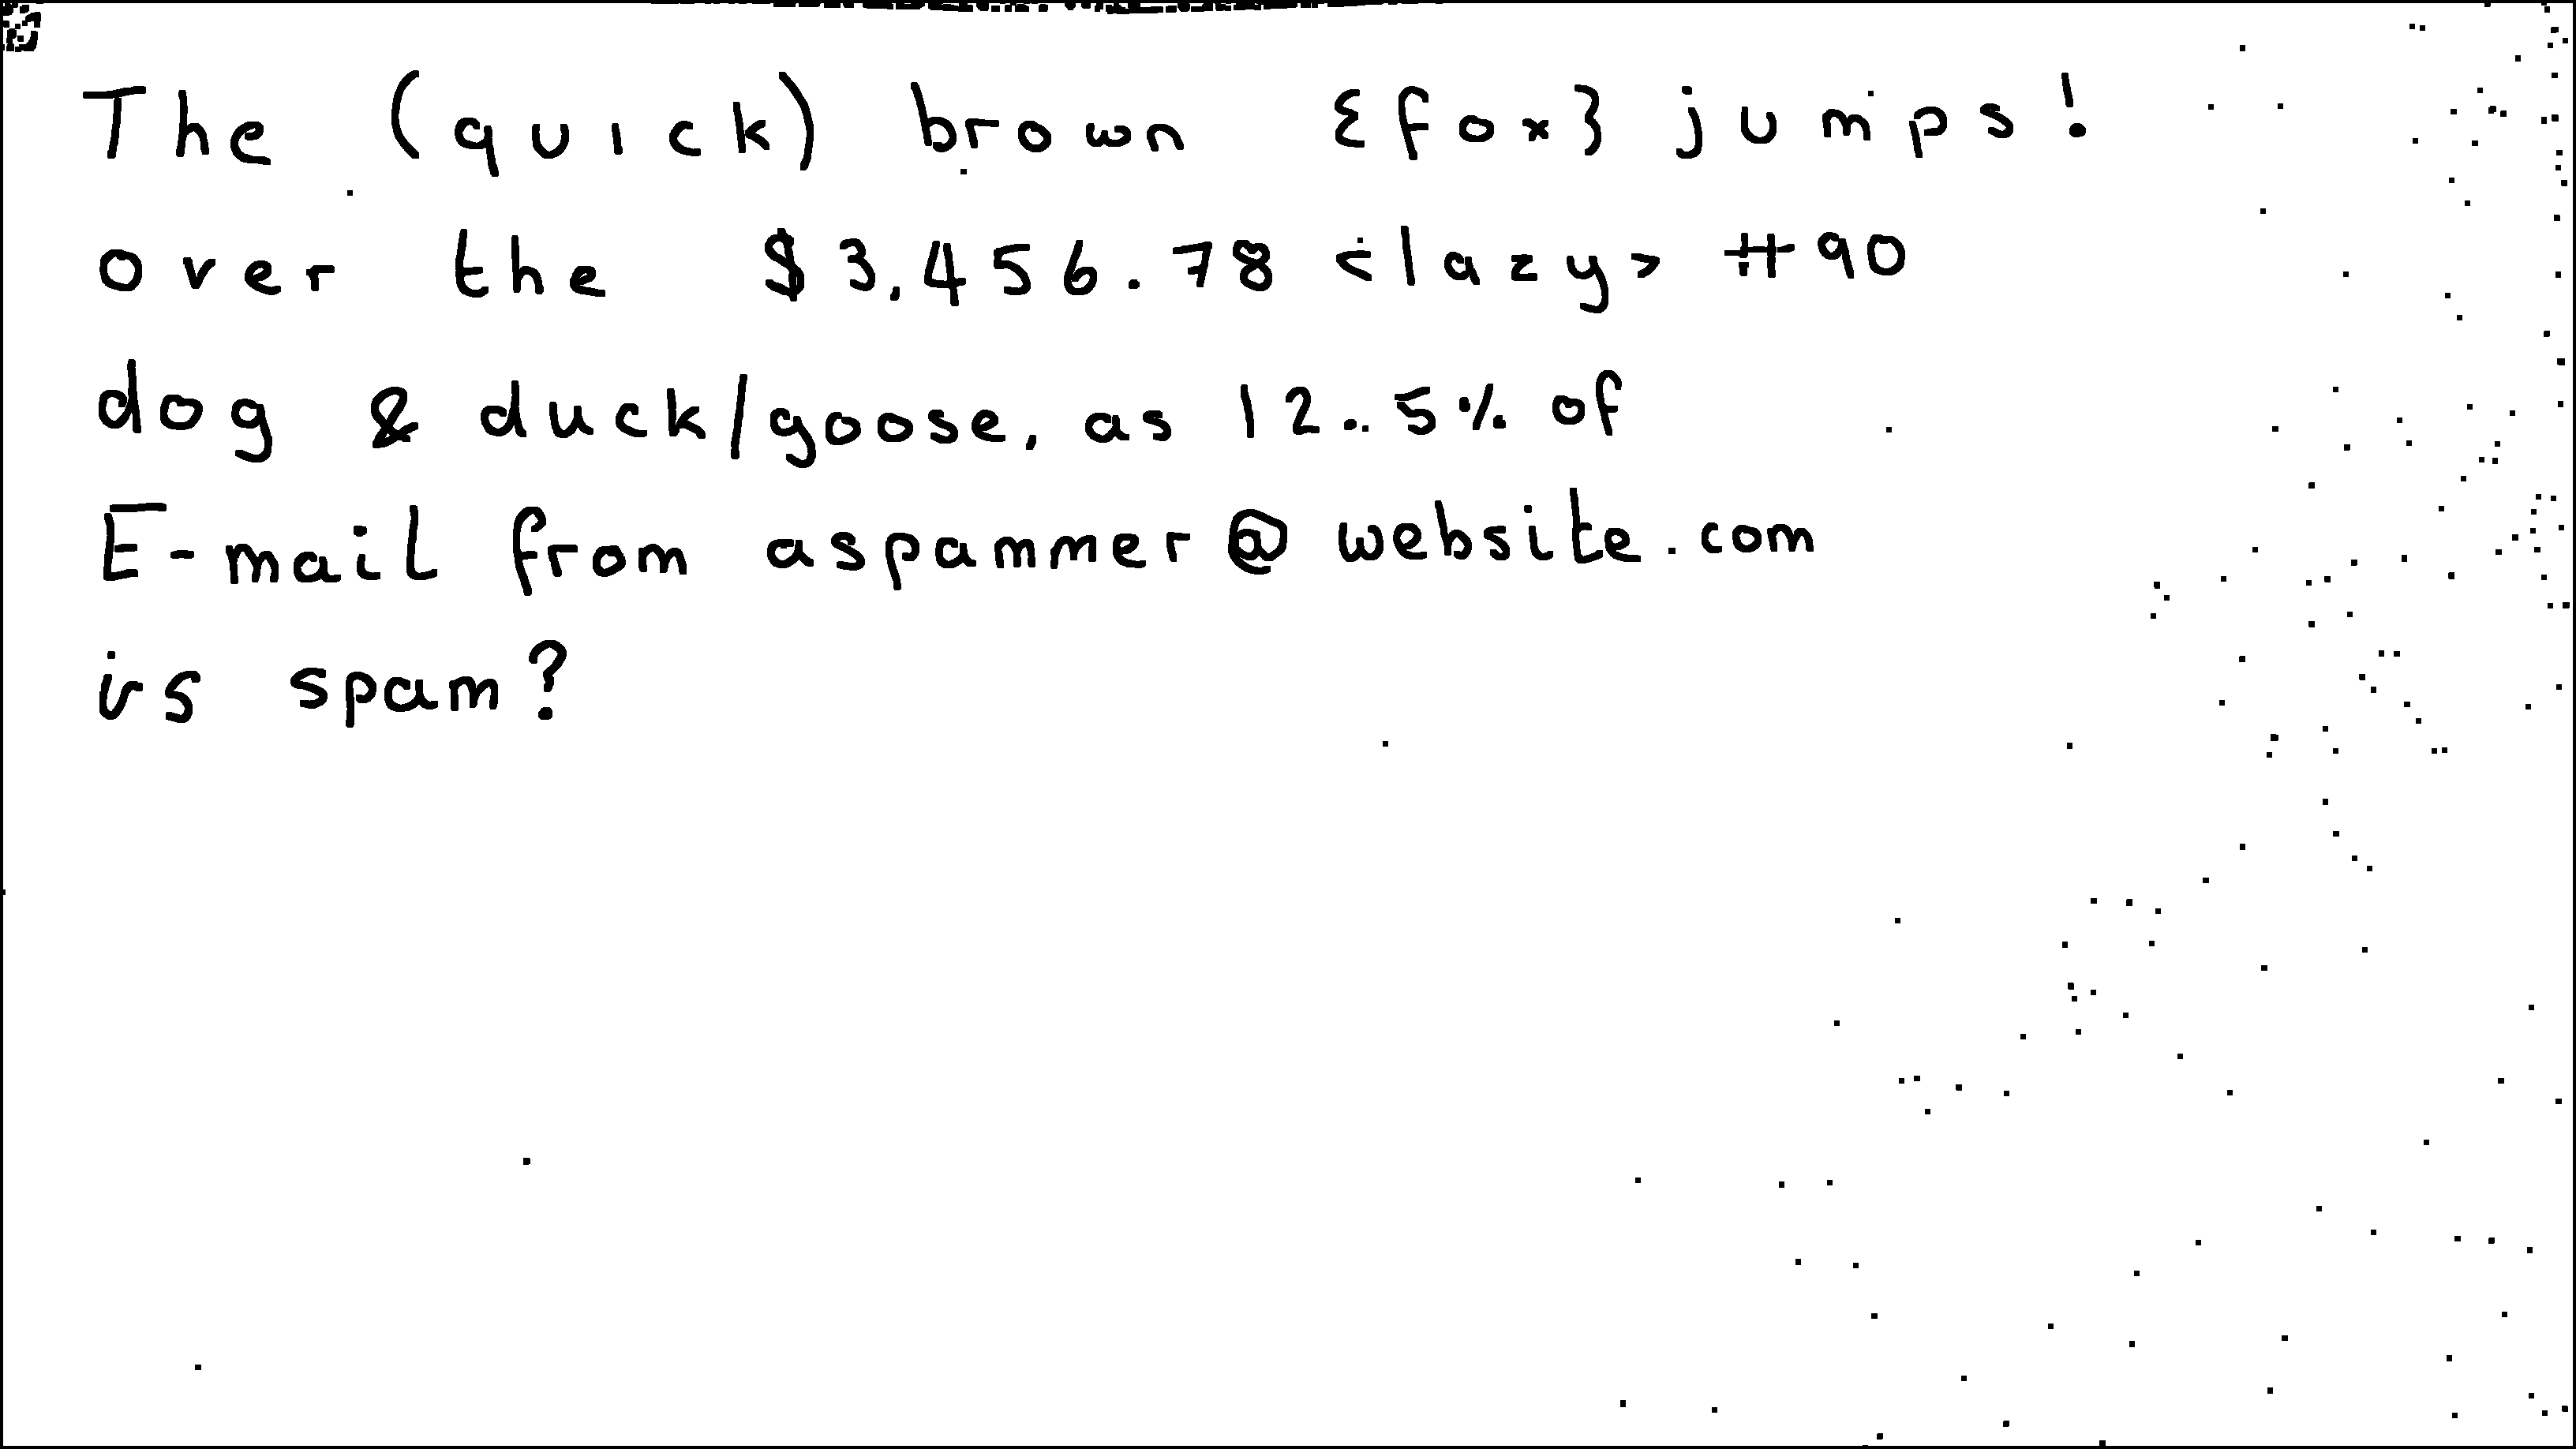 The (quick) brown {fox} jumps!
over the $3,456.78 <lazy> #90
dog & duck/goose, as 12.5% of
E-mail from aspammer@website.com
is spam?